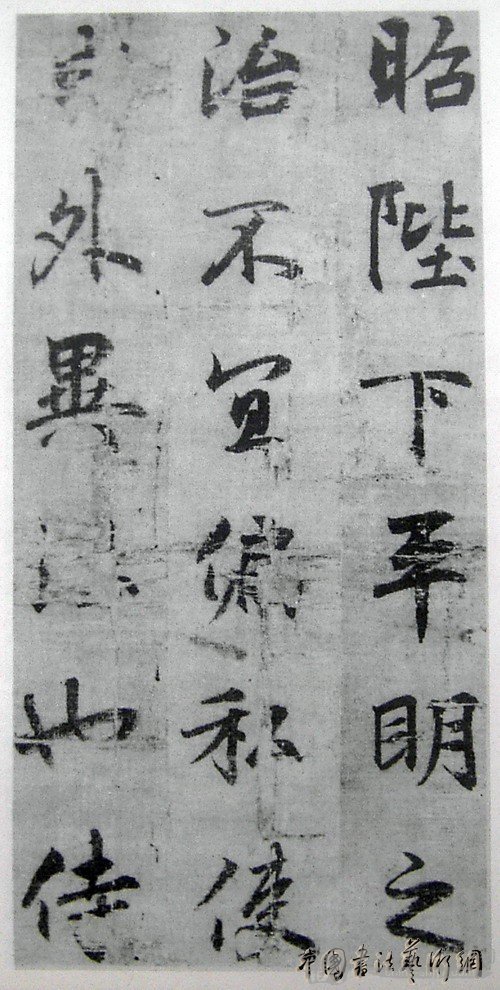 昭陛下平明之
治不宜偏私使
內外異法也侍
中國書法藝術網